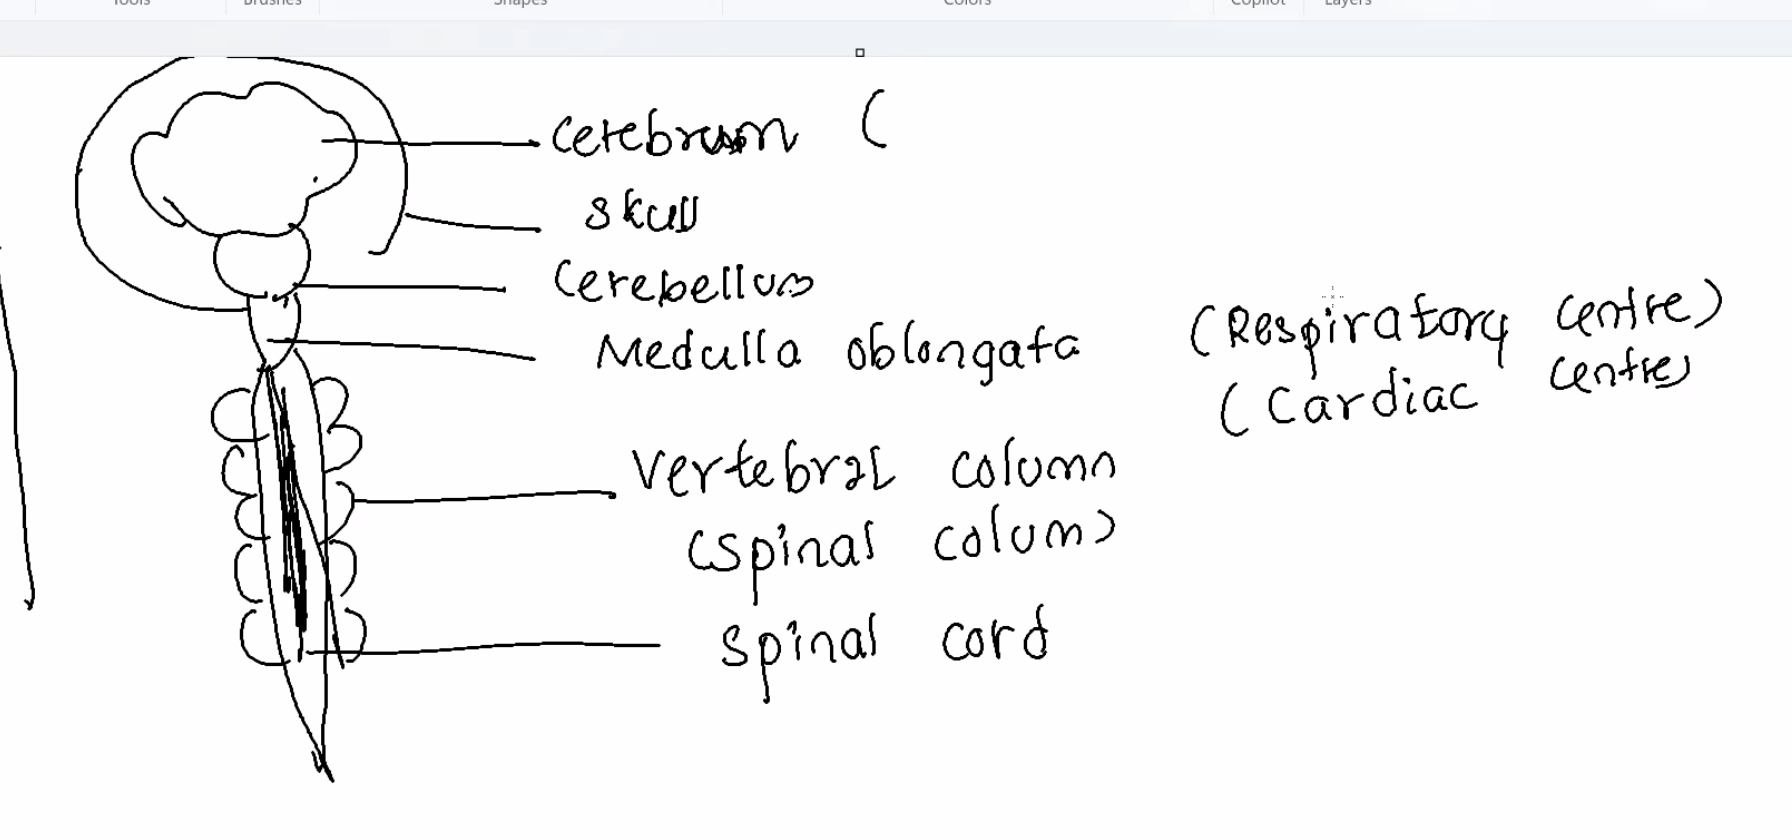 Tools Brushes Shapes Colors Copilot Layers
Cerebrum (
skull
Cerebellum
Medulla oblongata (Respiratory centre)
(Cardiac centre)
Vertebral column
(spinal colum)
spinal cord